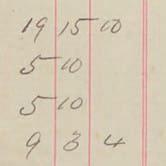 19 15 10
5 10
5 10
9 3 4